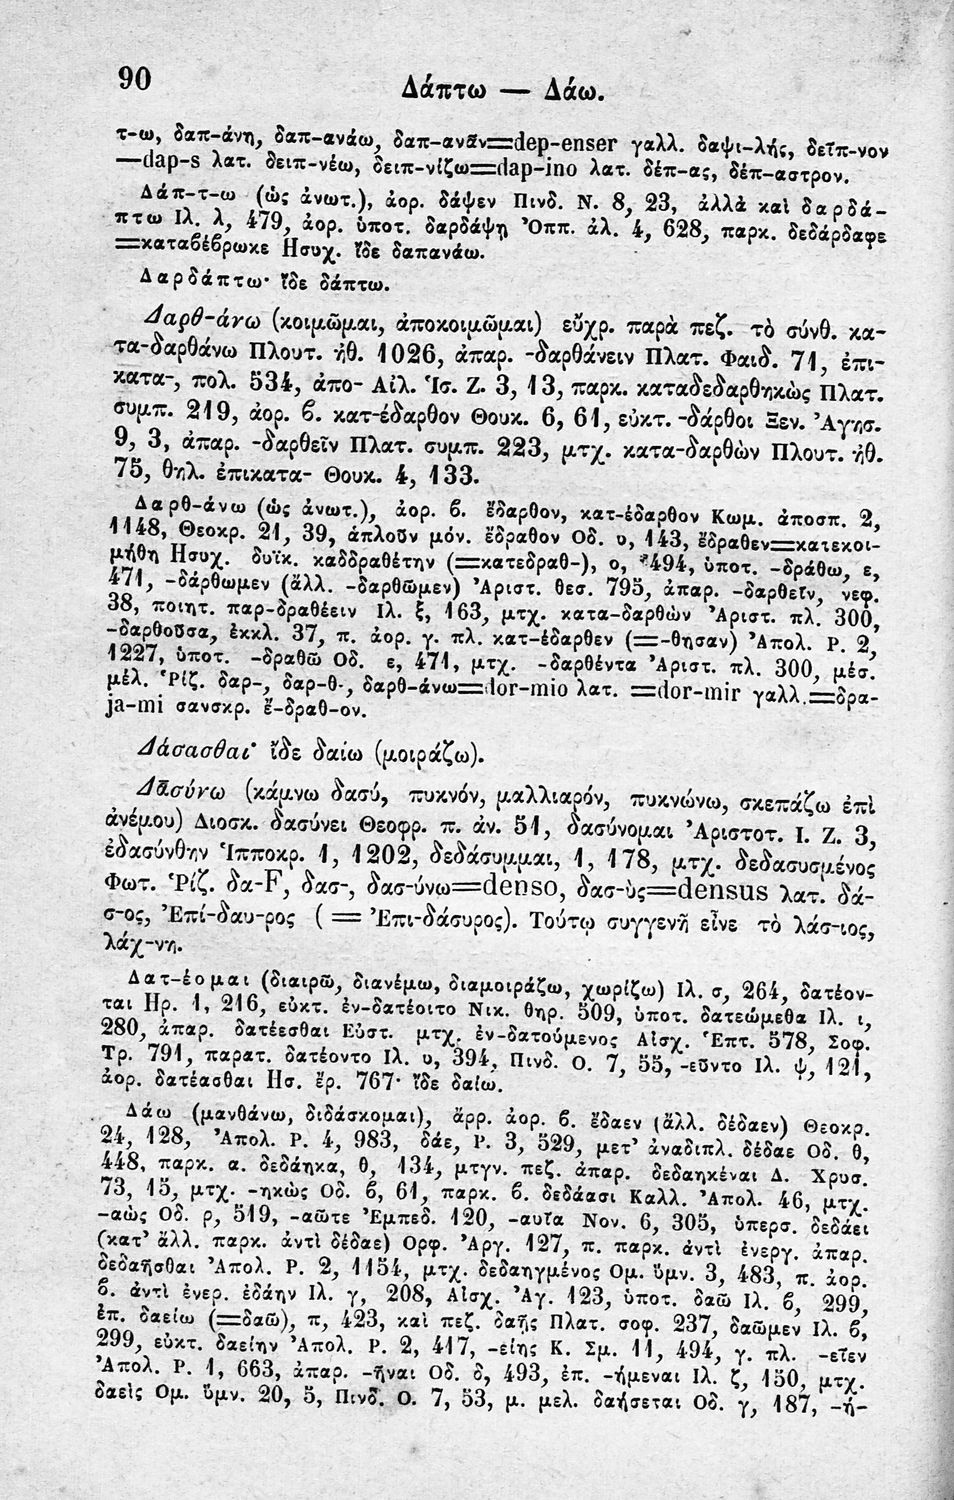 90
Δάπτω — Δάω.
τ-ω, δαπ-άνη, δαπ-ανάω, δαπ-ανᾶν=dep-enser γαλλ. δαψι-λής, δεῖπ-νον
—dap-s λατ. δειπ-νέω, δειπ-νίζω=dap-ino λατ. δέπ-ας, δέπ-αστρον.
Δάπ-τ-ω (ὡς ἀνωτ.), ἀορ. δάψεν Πινδ. Ν. 8, 23, ἀλλὰ καὶ δαρδά-
πτω Ιλ. λ, 479, ἀορ. ὑποτ. δαρδάψῃ Ὀππ. ἁλ. 4, 628, παρκ. δεδάρδαφε
=καταβέβρωκε Ησυχ. ἴδε δαπανάω.
Δαρδάπτω· ἴδε δάπτω.
Δαρθ-άνω (κοιμῶμαι, ἀποκοιμῶμαι) εὔχρ. παρὰ πεζ. τὸ σύνθ. κα-
τα-δαρθάνω Πλουτ. ἠθ. 1026, ἀπαρ. -δαρθάνειν Πλατ. Φαιδ. 71, ἐπι-
κατα-, πολ. 534, ἀπο- Αἰλ. Ἱσ. Ζ. 3, 13, παρκ. καταδεδαρθηκὼς Πλατ.
συμπ. 219, ἀορ. β. κατ-έδαρθον Θουκ. 6, 61, εὐκτ. -δάρθοι Ξεν. Ἀγησ.
9, 3, ἀπαρ. -δαρθεῖν Πλατ. συμπ. 223, μτχ. κατα-δαρθὼν Πλουτ. ἠθ.
75, θηλ. ἐπικατα- Θουκ. 4, 133.
Δαρθ-άνω (ὡς ἀνωτ.), ἀορ. β. ἔδαρθον, κατ-έδαρθον Κωμ. ἀποσπ. 2,
1148, Θεοκρ. 21, 39, ἁπλοῦν μόν. ἔδραθον Οδ. υ, 143, ἔδραθεν=κατεκοι-
μήθη Ησυχ. δυϊκ. καδδραθέτην (=κατεδραθ-), ο, 494, ὑποτ. -δράθω, ε,
471, -δάρθωμεν (ἄλλ. -δαρθῶμεν) Ἀριστ. θεσ. 795, ἀπαρ. -δαρθεῖν, νεφ.
38, ποιητ. παρ-δραθέειν Ιλ. ξ, 163, μτχ. κατα-δαρθὼν Ἀριστ. πλ. 300,
-δαρθοῦσα, ἐκκλ. 37, π. ἀορ. γ. πλ. κατ-έδαρθεν (=-θησαν) Ἀπολ. Ρ. 2,
1227, ὑποτ. -δραθῶ Οδ. ε, 471, μτχ. -δαρθέντα Ἀριστ. πλ. 300, μέσ.
μέλ. Ῥίζ. δαρ-, δαρ-θ-, δαρθ-άνω=dor-mio λατ. =dor-mir γαλλ.=δρα-
ja-mi σανσκρ. ἔ-δραθ-ον.
Δάσασθαι· ἴδε δαίω (μοιράζω).
Δᾰσύνω (κάμνω δασύ, πυκνόν, μαλλιαρόν, πυκνώνω, σκεπάζω ἐπὶ
ἀνέμου) Διοσκ. δασύνει Θεοφρ. π. ἀν. 51, δασύνομαι Ἀριστοτ. Ι. Ζ. 3,
ἐδασύνθην Ἱπποκρ. 1, 1202, δεδάσυμμαι, 1, 178, μτχ. δεδασυσμένος
Φωτ. Ῥίζ. δα-F, δασ-, δασ-ύνω=denso, δασ-ὺς=densus λατ. δά-
σ-ος, Ἐπί-δαυ-ρος ( = Ἐπι-δάσυρος). Τούτῳ συγγενῆ εἶνε τὸ λάσ-ιος,
λάχ-νη.
Δατ-έομαι (διαιρῶ, διανέμω, διαμοιράζω, χωρίζω) Ιλ. σ, 264, δατέον-
ται Ηρ. 1, 216, εὐκτ. ἐν-δατέοιτο Νικ. θηρ. 509, ὑποτ. δατεώμεθα Ιλ. ι,
280, ἀπαρ. δατέεσθαι Εὐστ. μτχ. ἐν-δατούμενος Αἰσχ. Ἑπτ. 578, Σοφ.
Τρ. 791, παρατ. δατέοντο Ιλ. υ, 394, Πινδ. Ο. 7, 55, -εῦντο Ιλ. ψ, 121,
ἀορ. δατέασθαι Ησ. ἔρ. 767· ἴδε δαίω.
Δάω (μανθάνω, διδάσκομαι), ἄρρ. ἀορ. β. ἔδαεν (ἄλλ. δέδαεν) Θεοκρ.
24, 128, Ἀπολ. Ρ. 4, 983, δάε, Ρ. 3, 529, μετ' ἀναδιπλ. δέδαε Οδ. θ,
448, παρκ. α. δεδάηκα, θ, 134, μτγν. πεζ. ἀπαρ. δεδαηκέναι Δ. Χρυσ.
73, 15, μτχ. -ηκὼς Οδ. β, 61, παρκ. β. δεδάασι Καλλ. Ἀπολ. 46, μτχ.
-αὼς Οδ. ρ, 519, -αῶτε Ἐμπεδ. 120, -αυῖα Νον. 6, 305, ὑπερσ. δεδάει
(κατ' ἄλλ. παρκ. ἀντὶ δέδαε) Ορφ. Ἀργ. 127, π. παρκ. ἀντὶ ἐνεργ. ἀπαρ.
δεδαῆσθαι Ἀπολ. Ρ. 2, 1154, μτχ. δεδαηγμένος Ομ. ὕμν. 3, 483, π. ἀορ.
β. ἀντὶ ἐνερ. ἐδάην Ιλ. γ, 208, Αἰσχ. Ἀγ. 123, ὑποτ. δαῶ Ιλ. β, 299,
ἐπ. δαείω (=δαῶ), π, 423, καὶ πεζ. δαῇς Πλατ. σοφ. 237, δαῶμεν Ιλ. β,
299, εὐκτ. δαείην Ἀπολ. Ρ. 2, 417, -είης Κ. Σμ. 11, 494, γ. πλ. -εῖεν
Ἀπολ. Ρ. 1, 663, ἀπαρ. -ῆναι Οδ. δ, 493, ἐπ. -ήμεναι Ιλ. ζ, 150, μτχ.
δαεὶς Ομ. ὕμν. 20, 5, Πινδ. Ο. 7, 53, μ. μελ. δαήσεται Οδ. γ, 187, -ή-